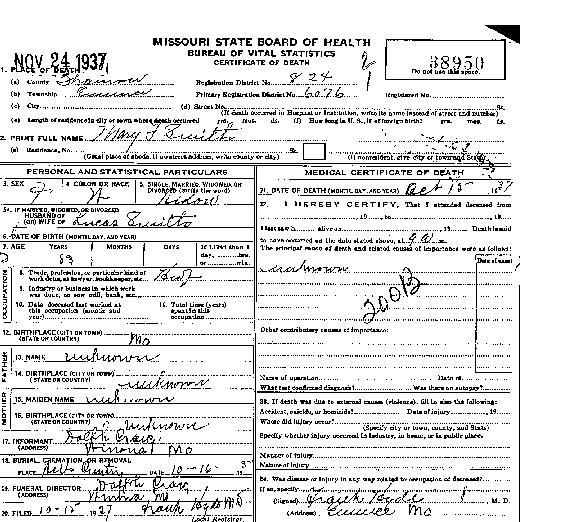 MISSOURI STATE BOARD OF HEALTH
BUREAU OF VITAL STATISTICS
CERTIFICATE OF DEATH
NOV 24 1937
38950
Do not use this space.
1. PLACE OF DEATH
(a) County Shannon
Registration District No. 824
(b) Township
Primary Registration District No. 6076
Registered No.
(c) City
(d) Street No. St.
(If death occurred in Hospital or Institution, write its name instead of street and number)
(e) Length of residence in city or town where death occurred yrs. mos. ds. (f) How long in U. S., if of foreign birth? yrs. mos. ds.
2. PRINT FULL NAME Mary
(a) Residence, No. St.
(Usual place of abode, if no street address, write county or city) (If nonresident, give city or town and State)
PERSONAL AND STATISTICAL PARTICULARS
3. SEX
4. COLOR OR RACE W
5. SINGLE, MARRIED, WIDOWED OR DIVORCED (write the word) Widow
5a. IF MARRIED, WIDOWED, OR DIVORCED
HUSBAND OF
(OR) WIFE OF Lucas
6. DATE OF BIRTH (MONTH, DAY, AND YEAR)
7. AGE YEARS MONTHS DAYS If LESS than 1 day, hrs. or min.
83
OCCUPATION
8. Trade, profession, or particular kind of work done, as sawyer, bookkeeper, etc.
9. Industry or business in which work was done, as saw mill, bank, etc.
10. Date deceased last worked at this occupation (month and year)
11. Total time (years) spent in this occupation
12. BIRTHPLACE (CITY OR TOWN)
(STATE OR COUNTRY) Mo
FATHER
13. NAME unknown
14. BIRTHPLACE (CITY OR TOWN)
(STATE OR COUNTRY) unknown
MOTHER
15. MAIDEN NAME unknown
16. BIRTHPLACE (CITY OR TOWN)
(STATE OR COUNTRY) unknown
17. INFORMANT Ralph Craig
(ADDRESS) Winona Mo
18. BURIAL, CREMATION, OR REMOVAL
PLACE DATE 10-16
19. FUNERAL DIRECTOR Ralph Craig
(ADDRESS) Winona Mo
20. FILED 10-15 1937 Frank Hyde M.D.
Local Registrar.
MEDICAL CERTIFICATE OF DEATH
21. DATE OF DEATH (MONTH, DAY, AND YEAR) Oct 15 37
22. I HEREBY CERTIFY, That I attended deceased from
19 to 19
I last saw h alive on 19 Death is said
to have occurred on the date stated above, at
The principal cause of death and related causes of importance were as follows:
Date of onset
unknown
200B
Other contributory causes of importance:
Name of operation Date of
What test confirmed diagnosis? Was there an autopsy?
23. If death was due to external causes (violence), fill in also the following:
Accident, suicide, or homicide? Date of injury 19
Where did injury occur?
(Specify city or town, county, and State)
Specify whether injury occurred in industry, in home, or in public place.
Manner of injury
Nature of injury
24. Was disease or injury in any way related to occupation of deceased?
If so, specify
(Signed) Frank Hyde M. D.
(Address) Mo